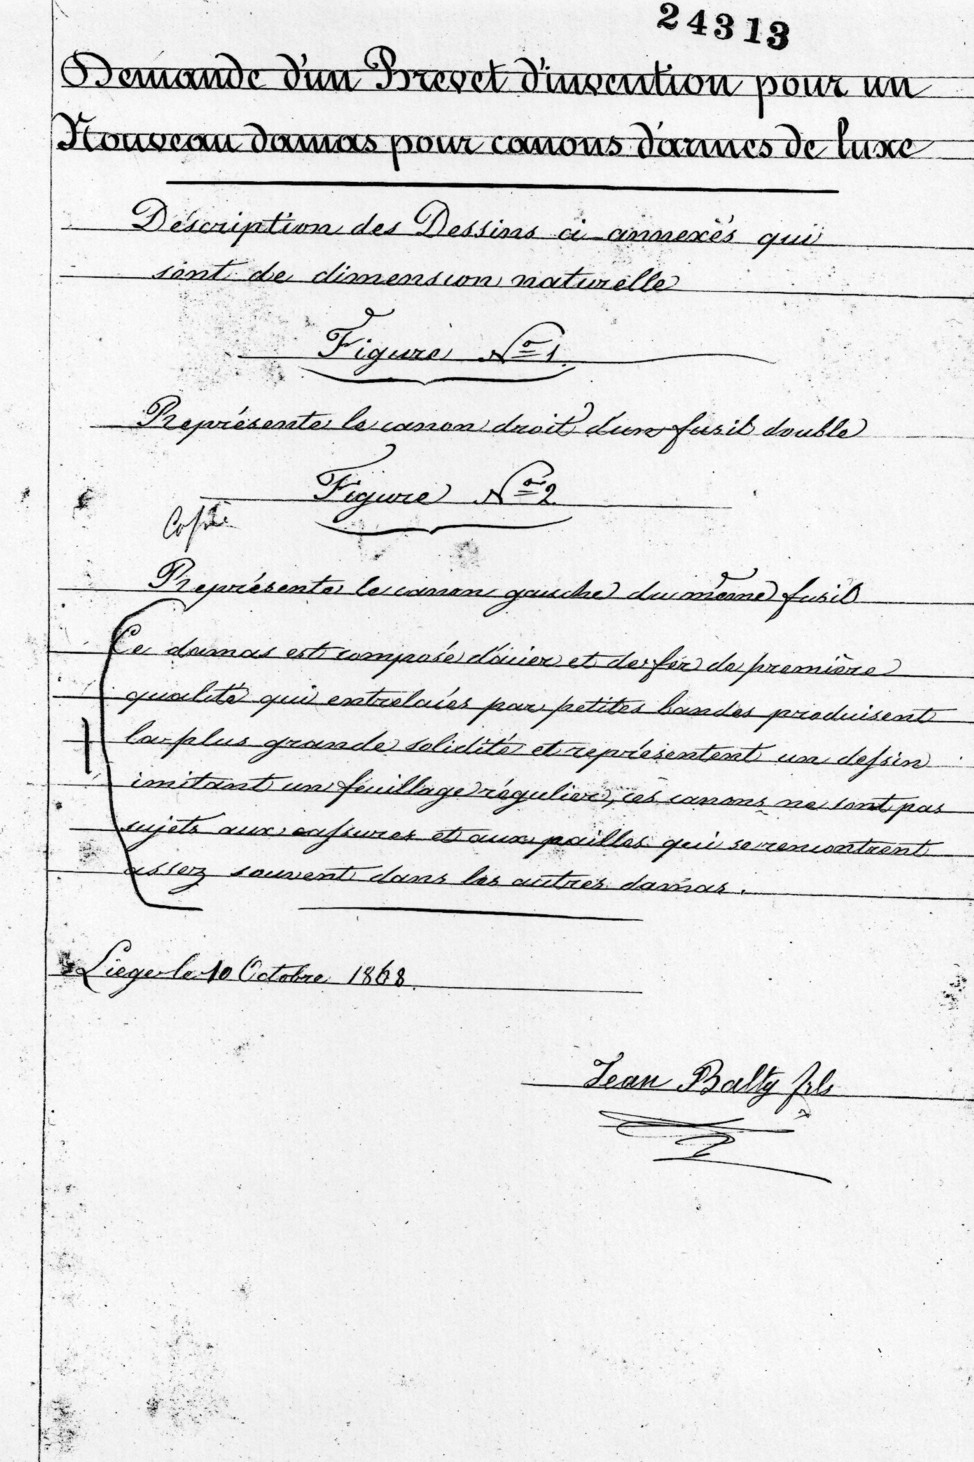 24313
Demande d'un Brevet d'invention pour un
Nouveau damas pour canons d'armes de luxe
Déscription des Dessins ci-annexés qui
sont de dimension naturelle
Figure No 1.
Réprésente le canon droit d'un fusil double
Figure No 2
Copié
Réprésente le canon gauche du même fusil
Ce damas est composé d'acier et de fer de première
qualité qui entrelaiés par petites bandes produisent
la plus grande solidité et représentent un dessin
imitant un feuillage régulier, ces canons ne sont pas
sujets aux cassures et aux pailles qui se remontrent
assez souvent dans les autres damas.
Liege le 10 Octobre 1868.
Jean Balty fils